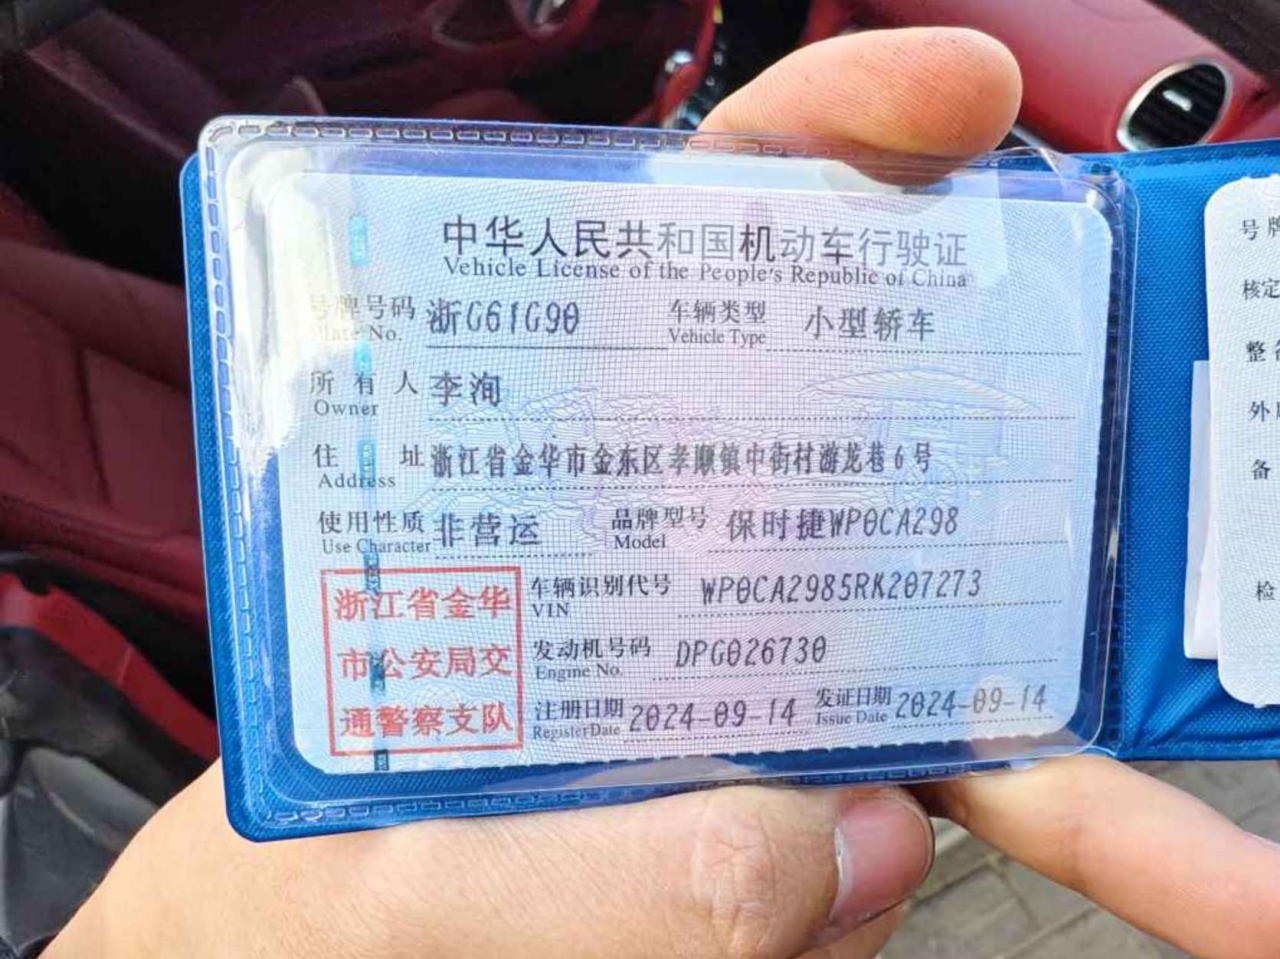 中华人民共和国机动车行驶证
Vehicle License of the People's Republic of China
号牌号码 浙G61G90 车辆类型 小型轿车
Plate No. Vehicle Type
所有人 李洵
Owner
住址 浙江省金华市金东区孝顺镇中街村游龙巷6号
Address
使用性质 非营运 品牌型号 保时捷WP0CA298
Use Character Model
浙江省金华
市公安局交
通警察支队
车辆识别代号 WP0CA2985RK207273
VIN
发动机号码 DPG026730
Engine No.
注册日期 2024-09-14 发证日期 2024-09-14
Register Date Issue Date
号牌
核定
整备
外
备
检